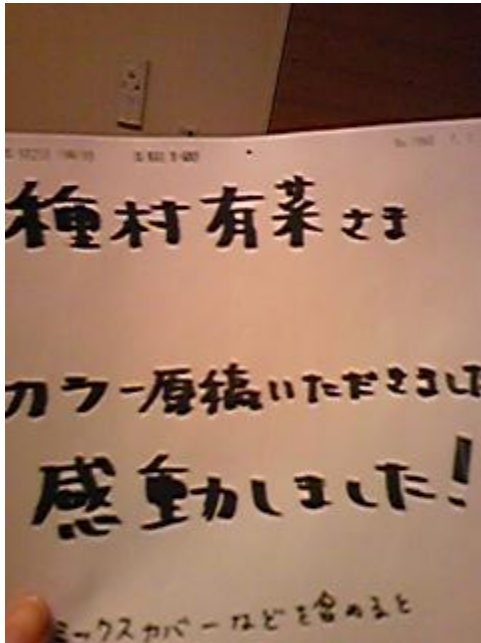 種村有菜さま
カラー原稿いただきました
感動しました!
ミックスカバーなどを含めると